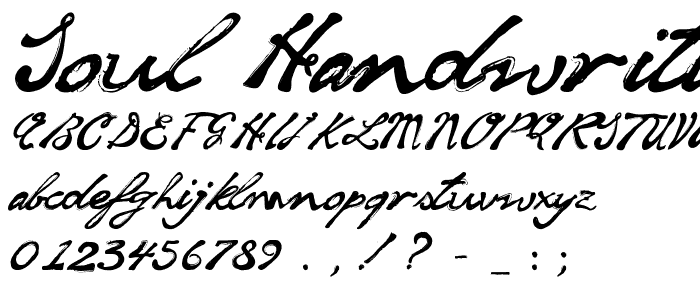 Soul Handwrit
ABCDEFGHIJKLMNOPQRSTUV
abcdefghijklmnopqrstuvwxyz
0123456789 . , ! ? - _ : ;